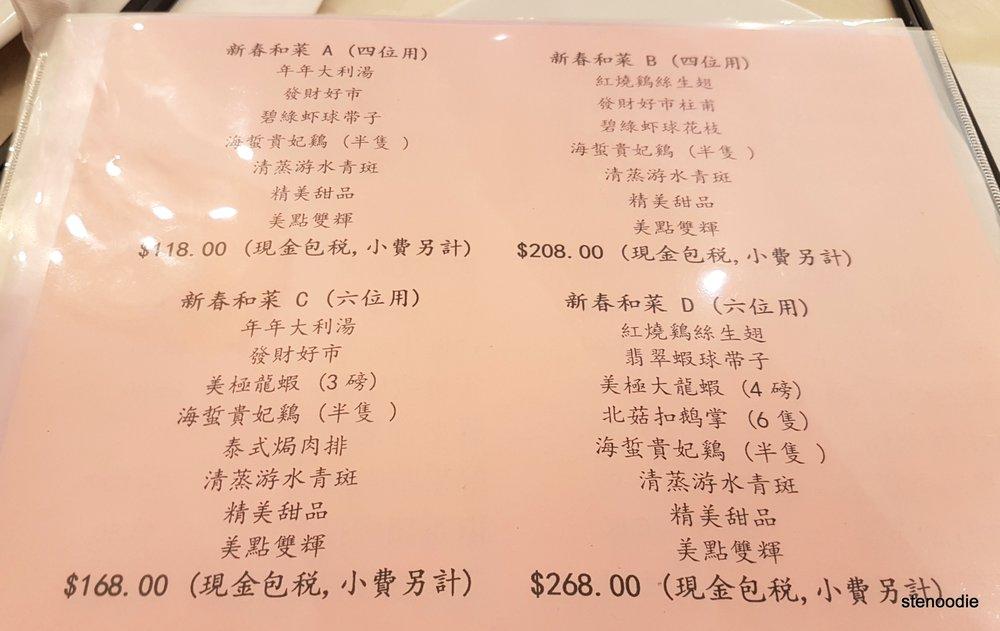 新春和菜 A (四位用)
年年大利湯
發財好市
碧綠虾球带子
海蜇貴妃鷄 (半隻 )
清蒸游水青斑
精美甜品
美點雙輝
$118.00 (現金包税, 小費另計)
新春和菜 B (四位用)
紅燒鷄絲生翅
發財好市柱甫
碧綠虾球花枝
海蜇貴妃鷄 (半隻 )
清蒸游水青斑
精美甜品
美點雙輝
$208.00 (現金包税, 小費另計)
新春和菜 C (六位用)
年年大利湯
發財好市
美極龍蝦 (3 磅)
海蜇貴妃鷄 (半隻 )
泰式焗肉排
清蒸游水青斑
精美甜品
美點雙輝
$168.00 (現金包税, 小費另計)
新春和菜 D (六位用)
紅燒鷄絲生翅
翡翠蝦球带子
美極大龍蝦 (4 磅)
北菇扣鵝掌 (6 隻)
海蜇貴妃鷄 (半隻 )
清蒸游水青斑
精美甜品
美點雙輝
$268.00 (現金包税, 小費另計)
stenoodie